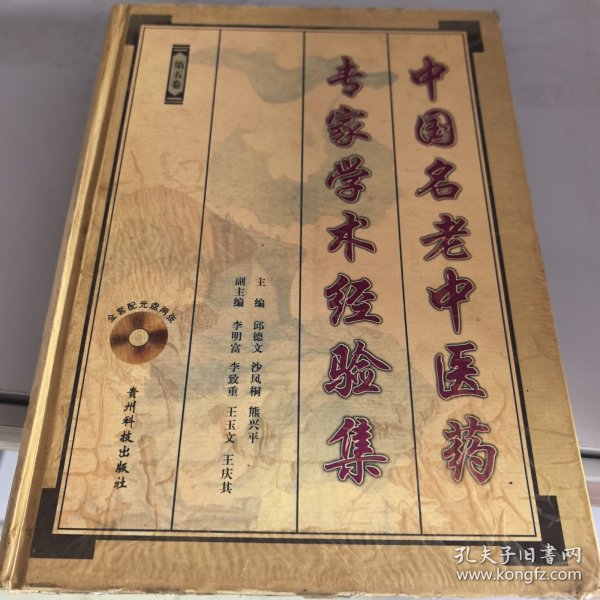 中国名老中医药
专家学术经验集
第五卷
主 编 邱德文 沙凤桐 熊兴平
副主编 李明富 李致重 王玉文 王庆其
全套配光盘两张
贵州科技出版社
孔夫子旧书网
www.kongfz.com